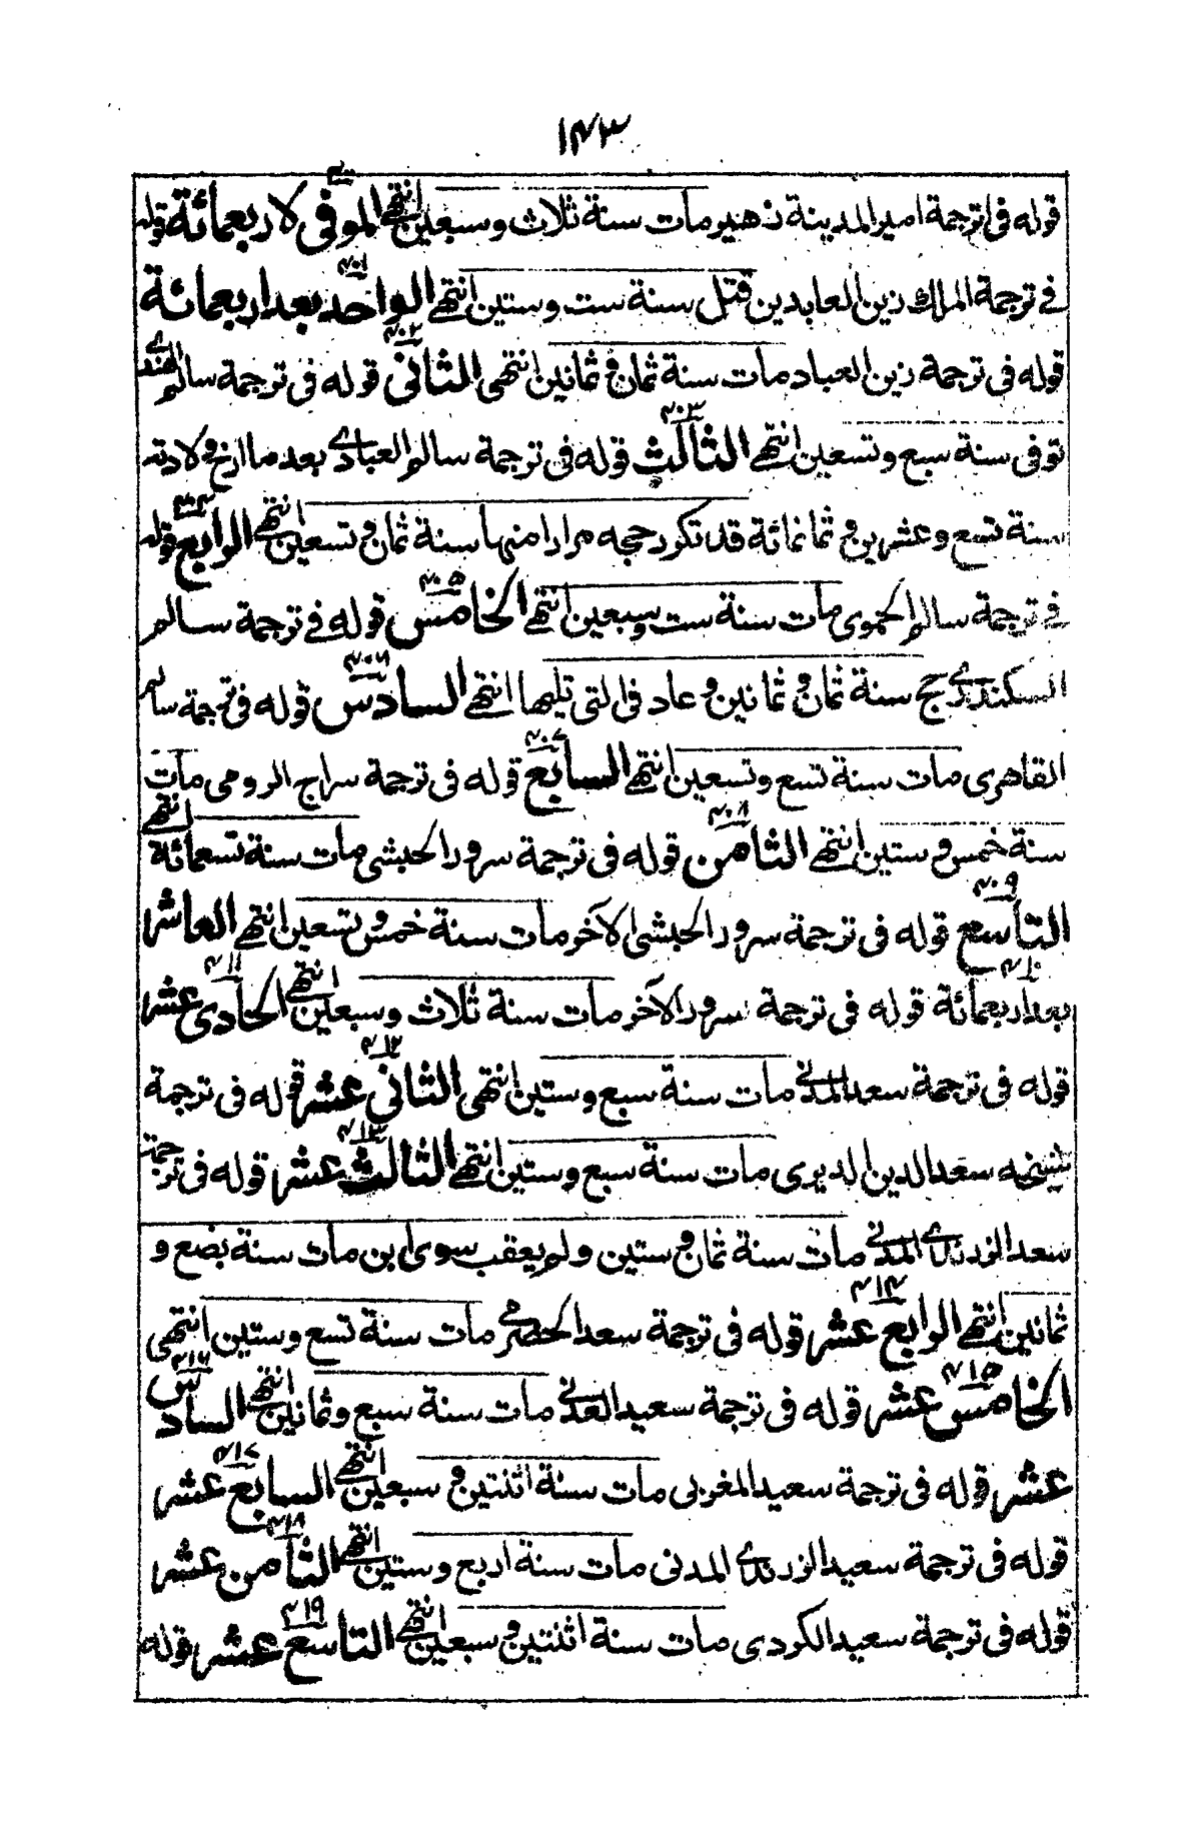 ١٤٣
قوله فى ترجمة امير المدينة زهير مات سنة ثلاث وسبعين انتهى الموفى لاربعمائة قوله
٤٠٠
فى ترجمة الملك زين العابدين قتل سنة ست وستين انتهى الواحد بعد اربعمائة
٤٠١
قوله فى ترجمة زين العباد مات سنة ثمان وثمانين انتهى الثانى قوله فى ترجمة سالم الهندى
٤٠٢
توفى سنة سبع وتسعين انتهى الثالث قوله فى ترجمة سالم العبادى بعد ما ارخ ولادته
٤٠٣
سنة تسع وعشرين وثمانمائة قد تكرر حجه مرارا منها سنة ثمان وتسعين انتهى الرابع قوله
٤٠٤
فى ترجمة سالم الحموى مات سنة ست وسبعين انتهى الخامس قوله فى ترجمة سالم
٤٠٥
السكندرى حج سنة ثمان وثمانين وعاد فى التى تليها انتهى السادس قوله فى ترجمة سالم
٤٠٦
القاهرى مات سنة تسع وتسعين انتهى السابع قوله فى ترجمة سراج الرومى مات
٤٠٧
سنة خمس وستين انتهى الثامن قوله فى ترجمة سرور الحبشى مات سنة تسعمائة انتهى
٤٠٨
التاسع قوله فى ترجمة سرور الحبشى الآخر مات سنة خمس وتسعين انتهى العاشر
٤٠٩
بعد اربعمائة قوله فى ترجمة سرور الآخر مات سنة ثلاث وسبعين انتهى الحادى عشر
٤١٠ ٤١١
قوله فى ترجمة سعد المدنى مات سنة سبع وستين انتهى الثانى عشر قوله فى ترجمة
٤١٢
شيخه سعد الدين الديرى مات سنة سبع وستين انتهى الثالث عشر قوله فى ترجمة
٤١٣
سعد الزرندى المدنى مات سنة ثمان وستين ولم يعقب سوى ابن مات سنة بضع و
ثمانين انتهى الرابع عشر قوله فى ترجمة سعد الحضرمى مات سنة تسع وستين انتهى
٤١٤
الخامس عشر قوله فى ترجمة سعيد العدنى مات سنة سبع وثمانين انتهى السادس
٤١٥ ٤١٦
عشر قوله فى ترجمة سعيد المغربى مات سنة اثنتين وسبعين انتهى السابع عشر
٤١٧
قوله فى ترجمة سعيد الزرندى المدنى مات سنة اربع وستين انتهى الثامن عشر
٤١٨
قوله فى ترجمة سعيد الكردى مات سنة اثنتين وسبعين انتهى التاسع عشر قوله
٤١٩